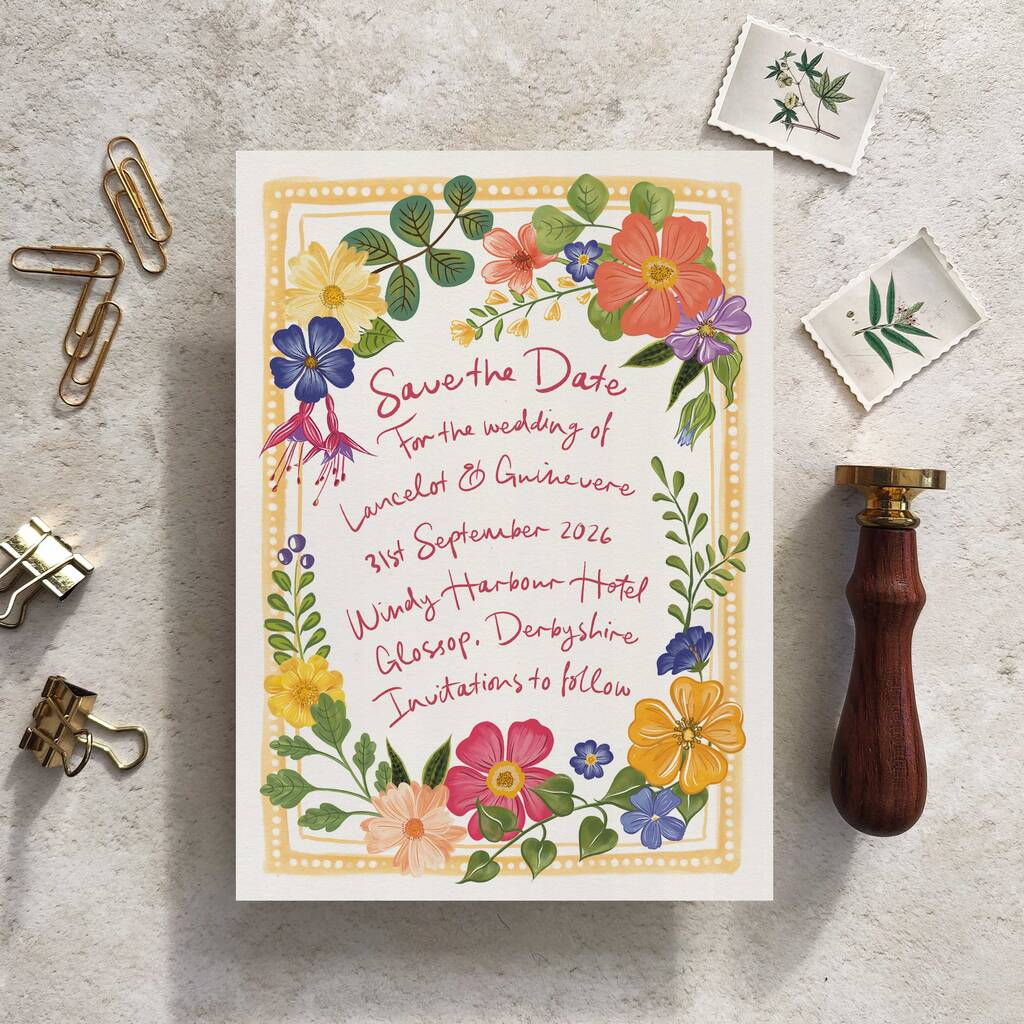 Save the Date
For the wedding of
Lancelot & Guinevere
31st September 2026
Windy Harbour Hotel
Glossop, Derbyshire
Invitations to follow